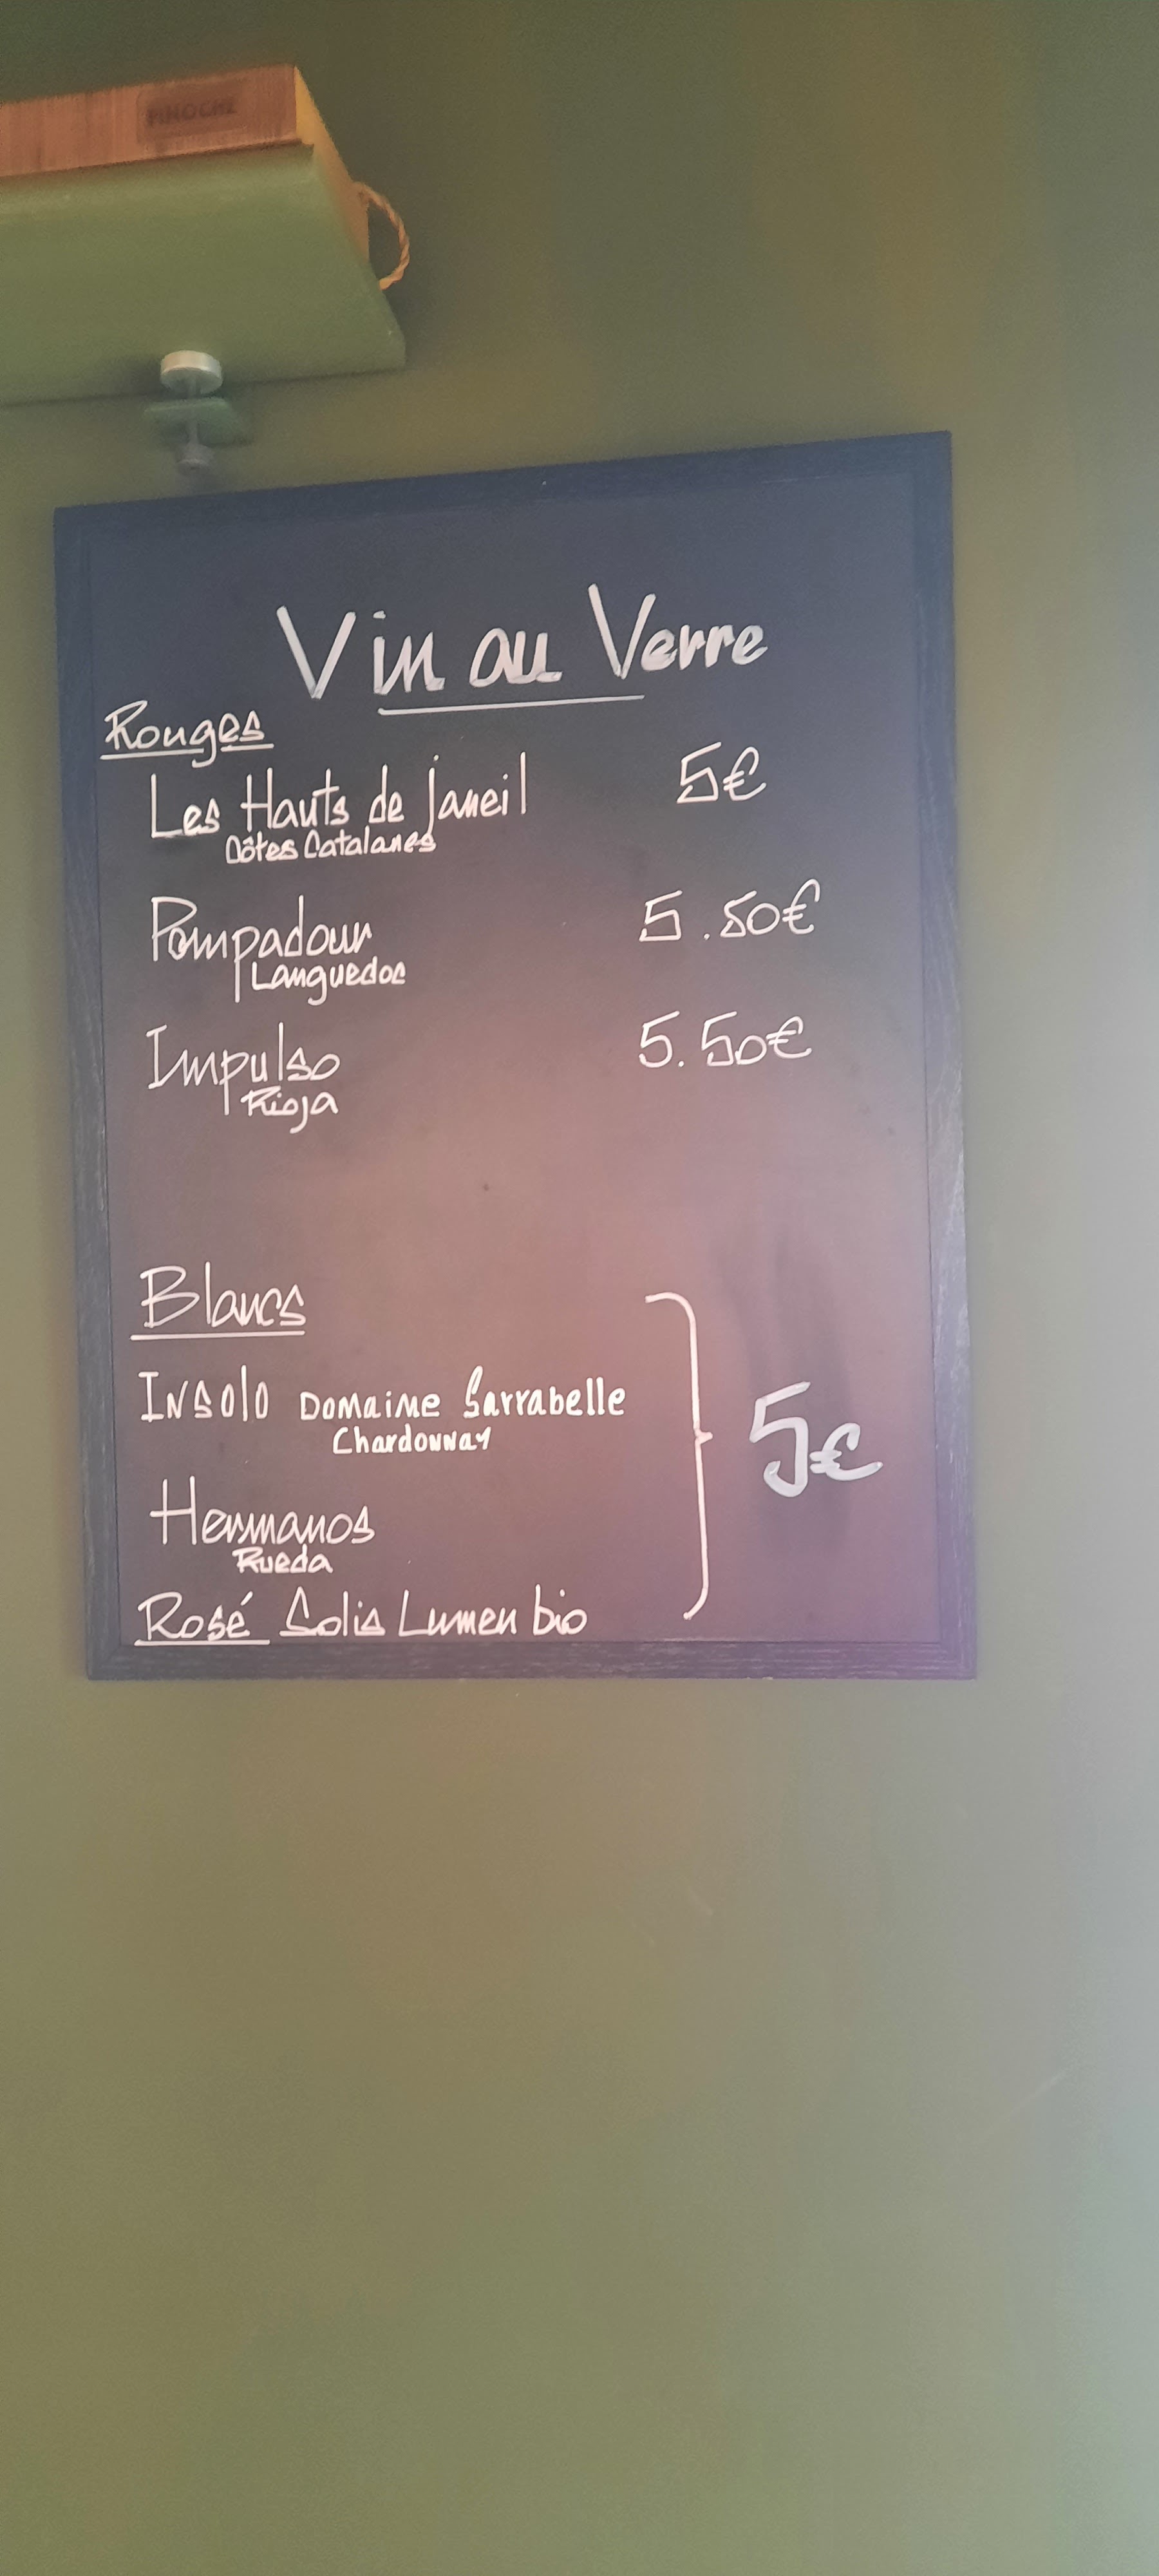 PINOCHE
Vin au Verre
Rouges
Les Hauts de Janeil 5€
Côtes Catalanes
Pompadour 5.50€
Languedoc
Impulso 5.50€
Rioja
Blancs
INSOlO DOMaiNe Sarrabelle
Chardonnay
5€
Hermanos
Rueda
Rosé Solis Lumen bio